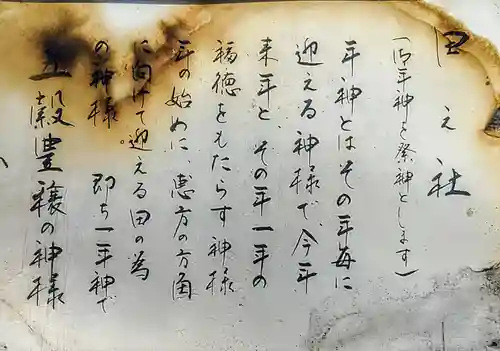 田え社
(御年神と祭神とします)
年神とはその年毎に
迎える神様で今年
来年と、その年一年の
福徳をもたらす神様
年の始めに、恵方の方角
に向けて迎える田の為
の神様。即ち一年神で
五穀豊穣の神様